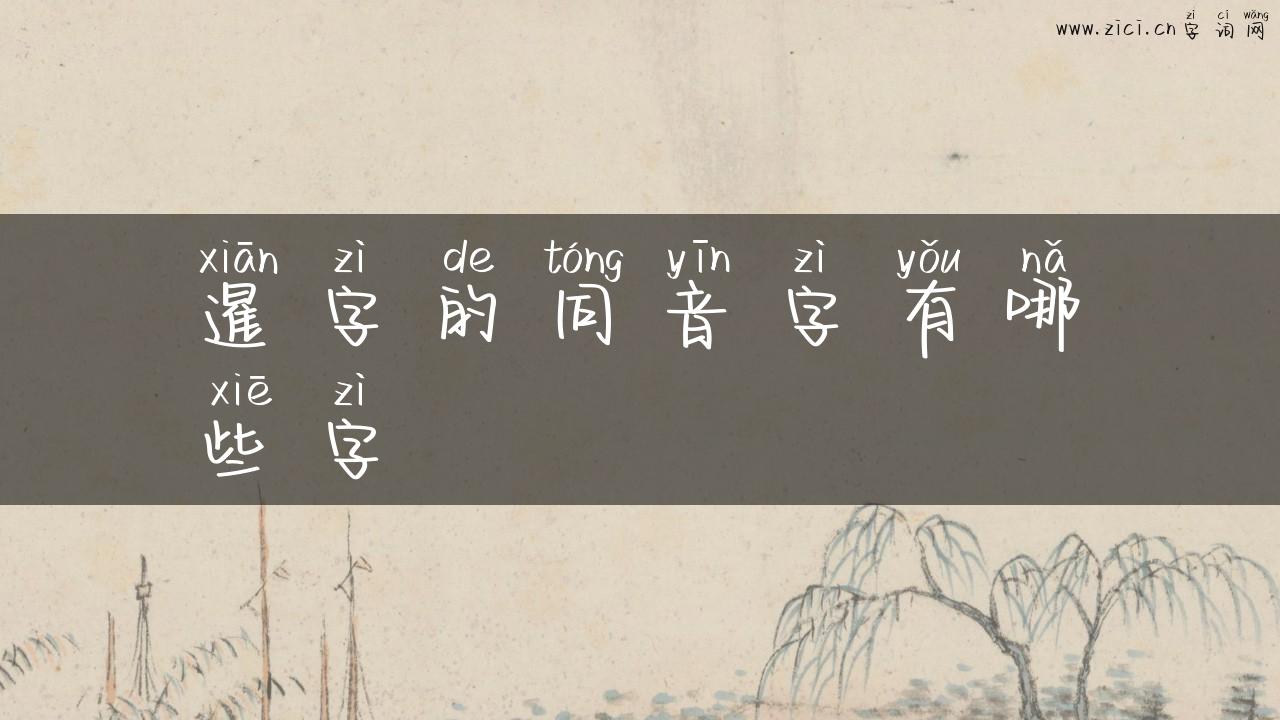 zì cí wǎng
www.zici.cn 字 词 网
xiān zì de tóng yīn zì yǒu nǎ
暹 字 的 同 音 字 有 哪
xiē zì
些 字